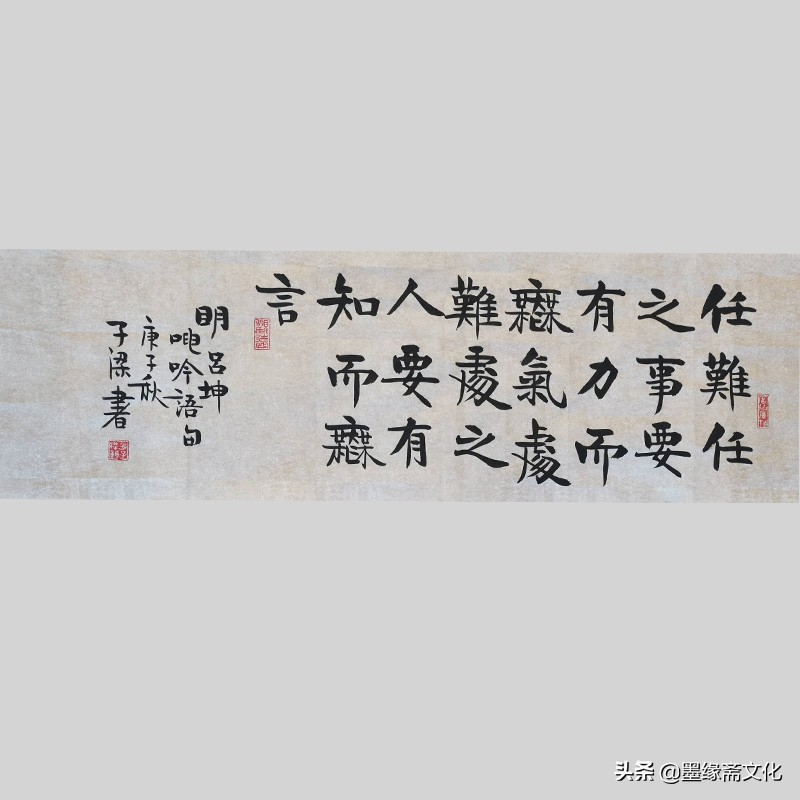 任難任
之事要
有力而
無氣處
難處之
人要有
知而無
言
明呂坤
呻吟語句
庚子秋
子梁書
头条 @墨缘斋文化